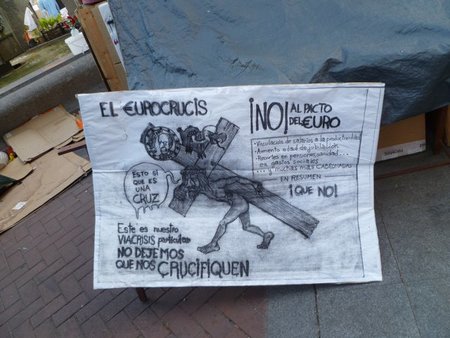 EL EUROCRUCIS
¡NO! AL PACTO
DEL EURO
• Vinculacion de salarios a la productividad
• Aumento edad de jubilación
• Recortes en pensiones, sanidad...
en gastos sociales
... y muchas más CABRONADAS
EN RESUMEN
¡QUE NO!
ESTO SÍ
QUE ES
UNA
CRUZ
Este es nuestro
VIACRISIS particular
NO DEJEMOS
QUE NOS CRUCIFIQUEN